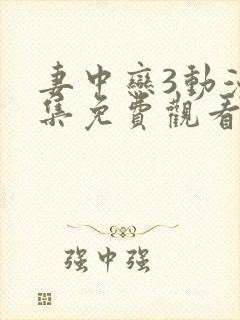 妻中戀3動
集免費觀看
强中强